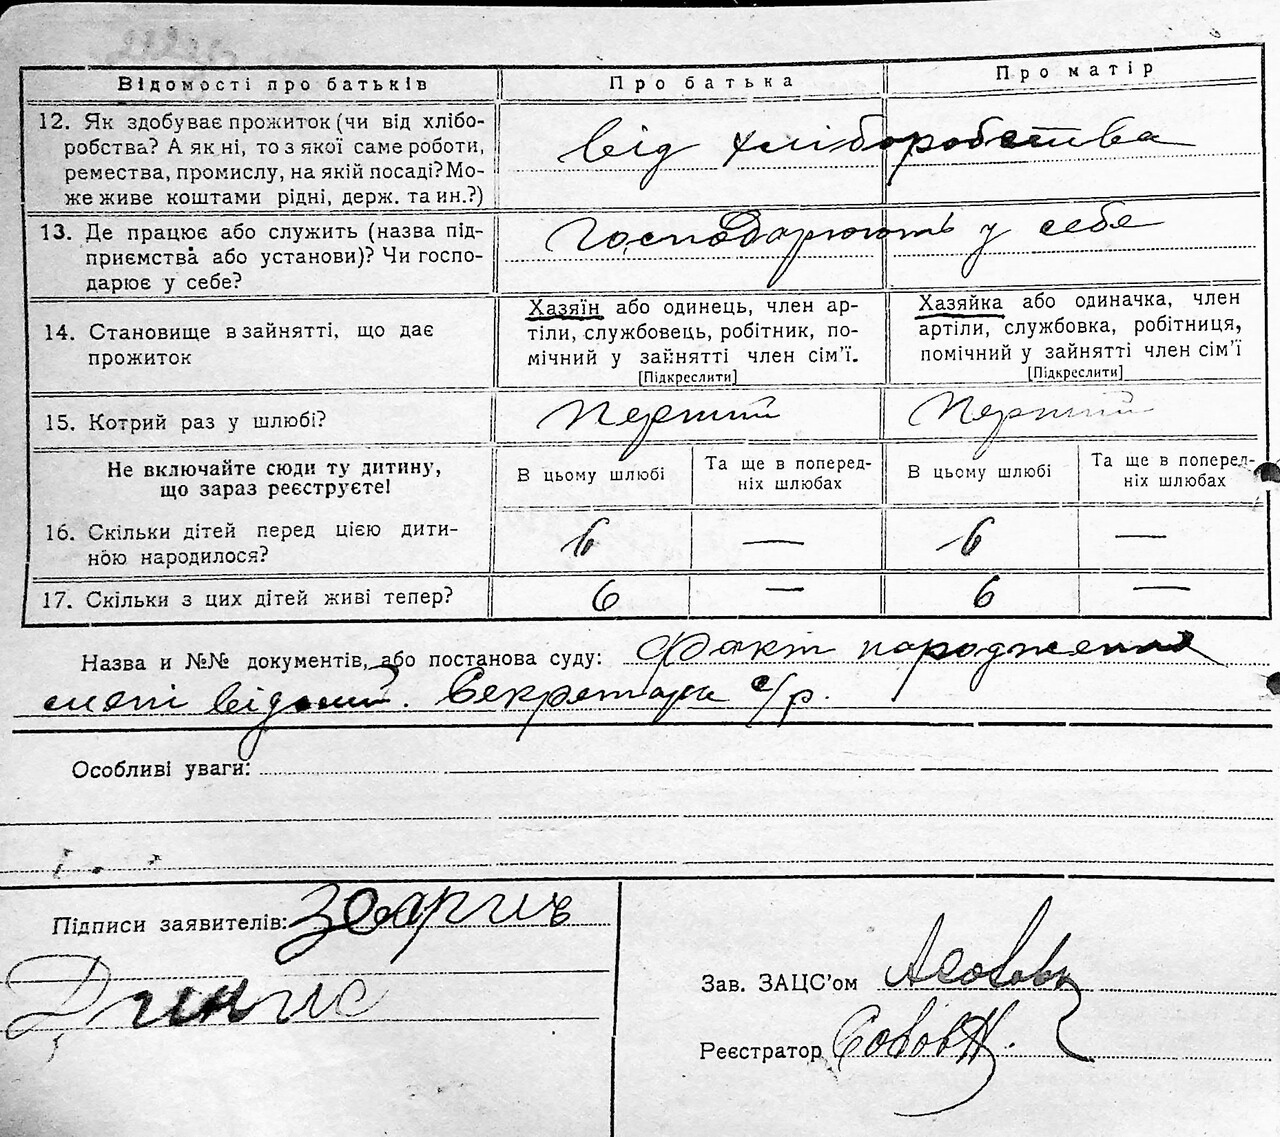 Відомості про батьків
Про батька
Про матір
12. Як здобуває прожиток (чи від хлібо-
робства? А як ні, то з якої саме роботи,
ремества, промислу, на якій посаді? Мо-
же живе коштами рідні, держ. та ин.?)
від хліборобства
13. Де працює або служить (назва під-
приємства або установи)? Чи госпо-
дарює у себе?
Господарюють у себе
14. Становище в зайнятті, що дає
прожиток
Хазяїн або одинець, член ар-
тіли, службовець, робітник, по-
мічний у зайнятті член сім'ї.
[Підкреслити]
Хазяйка або одиначка, член
артіли, службовка, робітниця,
помічний у зайнятті член сім'ї
[Підкреслити]
15. Котрий раз у шлюбі?
Перший
Перший
Не включайте сюди ту дитину,
що зараз реєструєте!
В цьому шлюбі
Та ще в поперед-
ніх шлюбах
В цьому шлюбі
Та ще в поперед-
ніх шлюбах
16. Скільки дітей перед цією дити-
ною народилося?
6 — 6 —
17. Скільки з цих дітей живі тепер?
6 — 6 —
Назва и №№ документів, або постанова суду: Факт народження
мені відомий. Секретарь с/р.
Особливі уваги:
Підписи заявителів:
Зав. ЗАЦС'ом
Реєстратор